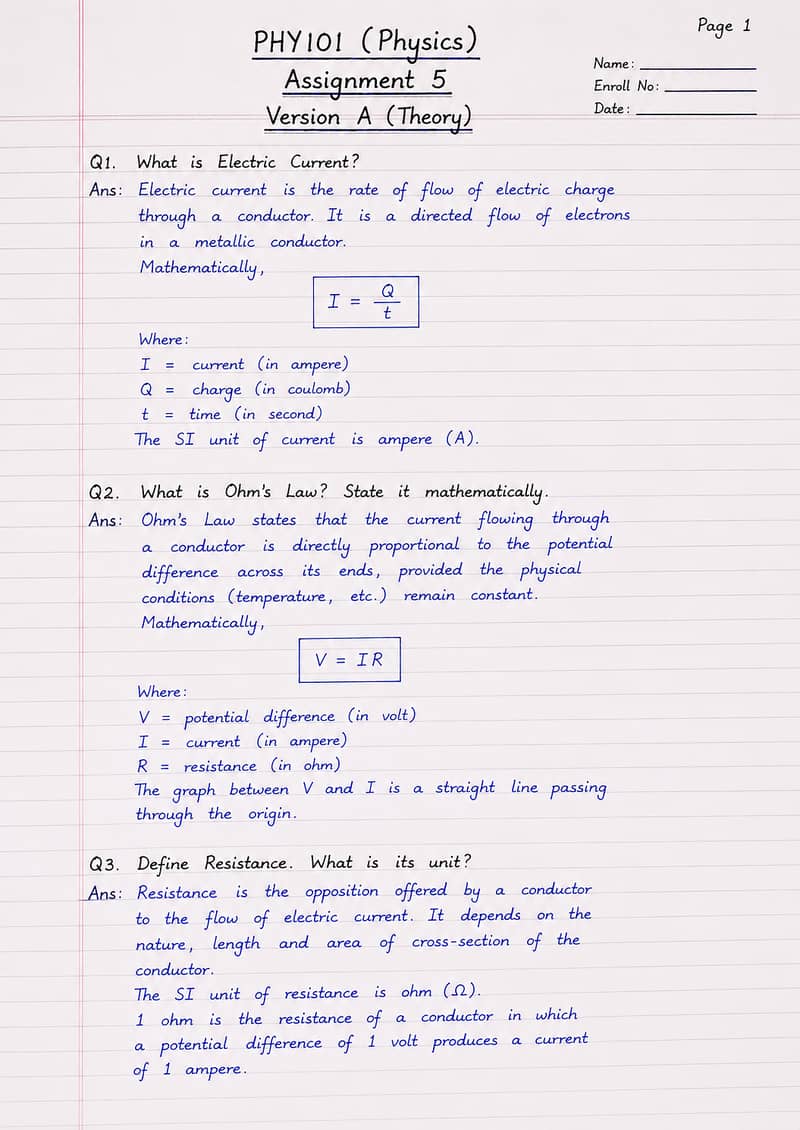 Page 1
PHY101 (Physics)
Assignment 5
Version A (Theory)
Name: ____________
Enroll No: ____________
Date: ____________
Q1. What is Electric Current?
Ans: Electric current is the rate of flow of electric charge
through a conductor. It is a directed flow of electrons
in a metallic conductor.
Mathematically,
I = Q/t
Where:
I = current (in ampere)
Q = charge (in coulomb)
t = time (in second)
The SI unit of current is ampere (A).
Q2. What is Ohm's Law? State it mathematically.
Ans: Ohm's Law states that the current flowing through
a conductor is directly proportional to the potential
difference across its ends, provided the physical
conditions (temperature, etc.) remain constant.
Mathematically,
V = IR
Where:
V = potential difference (in volt)
I = current (in ampere)
R = resistance (in ohm)
The graph between V and I is a straight line passing
through the origin.
Q3. Define Resistance. What is its unit?
Ans: Resistance is the opposition offered by a conductor
to the flow of electric current. It depends on the
nature, length and area of cross-section of the
conductor.
The SI unit of resistance is ohm (Ω).
1 ohm is the resistance of a conductor in which
a potential difference of 1 volt produces a current
of 1 ampere.